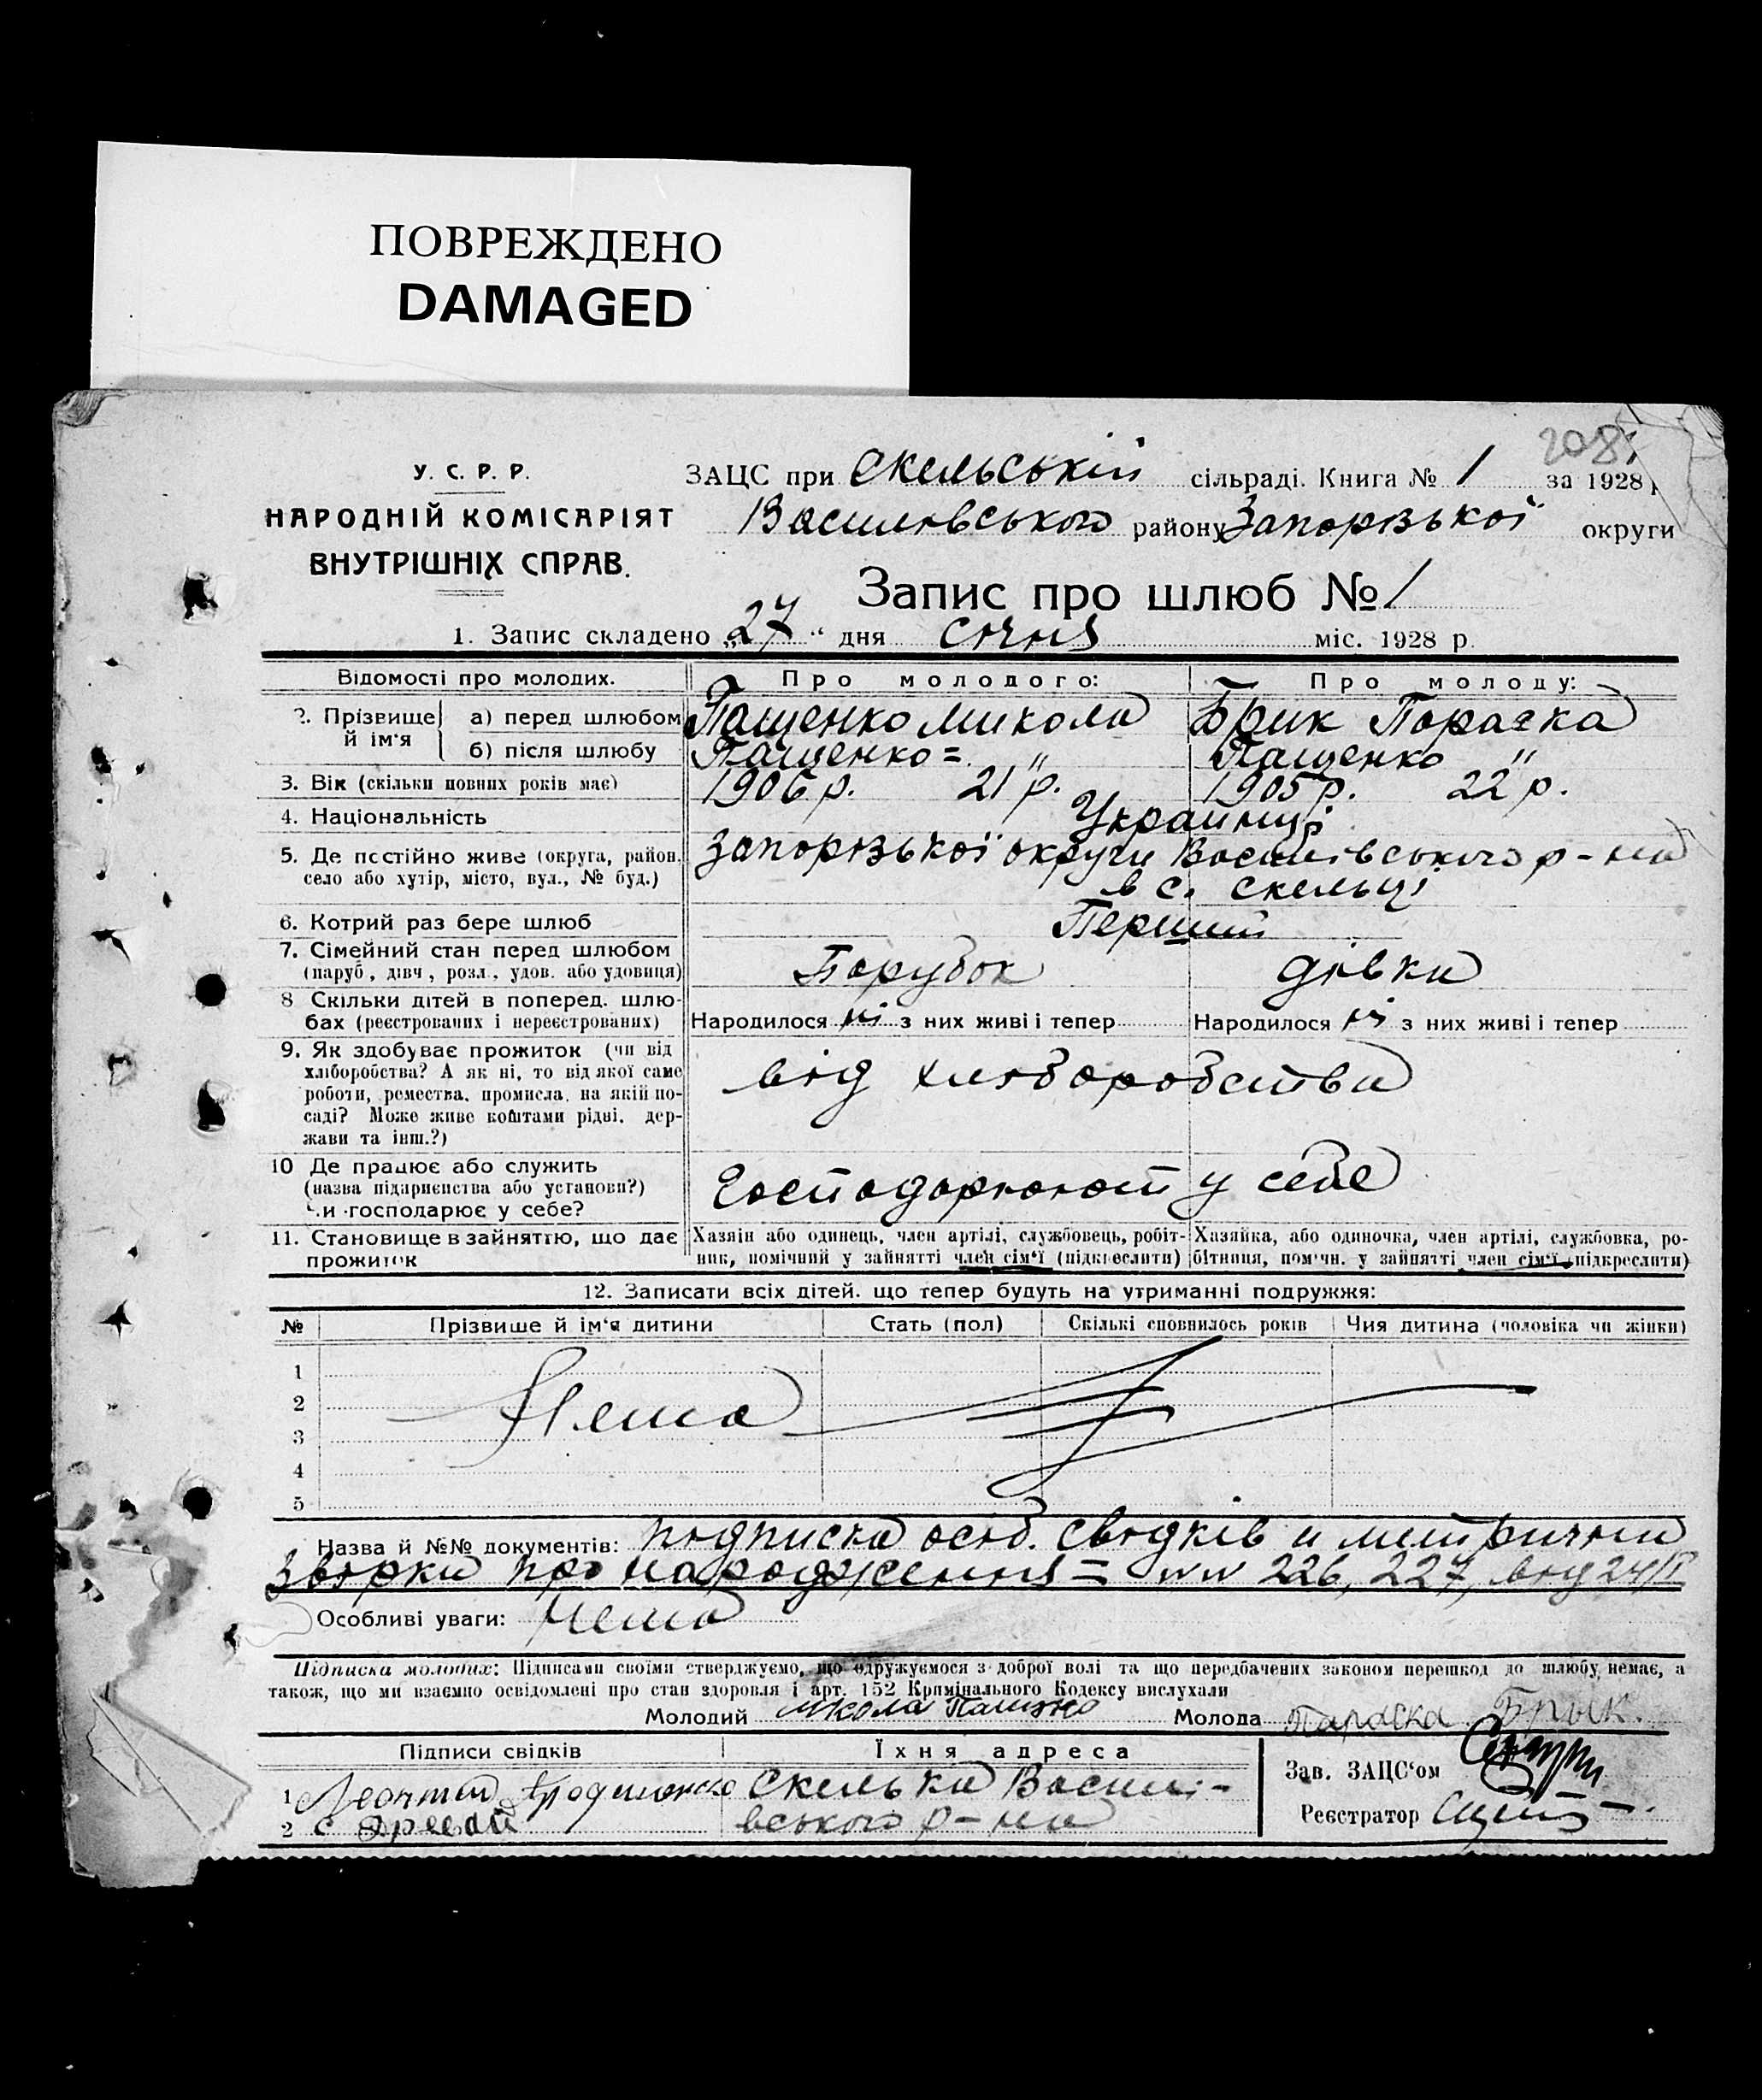 ПОВРЕЖДЕНО
DAMAGED
208
У. С. Р. Р.
НАРОДНІЙ КОМІСАРІЯТ
ВНУТРІШНІХ СПРАВ.
ЗАЦС при Скельській сільраді. Книга № 1 за 1928 р
Василівського району Запорізької округи
Запис про шлюб № 1
1. Запис складено „27“ дня січня міс. 1928 р.
Відомості про молодих. Про молодого: Про молоду:
2. Прізвище й ім'я
а) перед шлюбом Пащенко Микола Брик Параска
б) після шлюбу Пащенко = " Пащенко "
3. Вік (скільки повних років має) 1906 р. 21 р. 1905 р. 22 р.
4. Національність Українці
5. Де постійно живе (округа, район, село або хутір, місто, вул., № буд.) Запорізької округи Василівського р-на
в с. Скельці
6. Котрий раз бере шлюб Перший
7. Сімейний стан перед шлюбом (паруб., дівч., розл., удов. або удовиця) Парубок дівка
8 Скільки дітей в поперед. шлюбах (реєстрованих і нереєстрованих) Народилося ні з них живі і тепер Народилося ні з них живі і тепер
9. Як здобуває прожиток (чи від
хліборобства? А як ні, то від якої саме
роботи, ремества, промисла, на якій по-
саді? Може живе коштами рідні, дер-
жави та інш.?)
від хліборобства
10 Де працює або служить
(назва підприємства або установи?)
Чи господарює у себе?
Господарюют у себе
11. Становище в зайняттю, що дає прожиток
Хазяїн або одинець, член артілі, службовець, робіт-
ник, помічний у зайнятті член сім'ї (підкреслити)
Хазяйка, або одиночка, член артілі, службовка, ро-
бітниця, помічн. у зайнятті член сім'ї (підкреслити)
12. Записати всіх дітей, що тепер будуть на утриманні подружжя:
№ Прізвище й ім'я дитини Стать (пол) Скількі сповнилось років Чия дитина (чоловіка чи жінки)
1
2 Нема
3
4
5
Назва й №№ документів: підписка осіб. свідків и метричні
звірки про народження = №№ 226, 227, від 24/I
Особливі уваги: Нема
Підписка молодих: Підписами своїми стверджуємо, що одружуємося з доброї волі та що передбачених законом перешкод до шлюбу немає, а
також, що ми взаємно освідомлені про стан здоровля і арт. 152 Кримінального Кодексу вислухали
Молодий Микола Пащенко Молода Параска Брык.
Підписи свідків Їхня адреса
1 Леонтий
2
Скелька Василі-
вського р-на
Зав. ЗАЦС'ом
Реєстратор